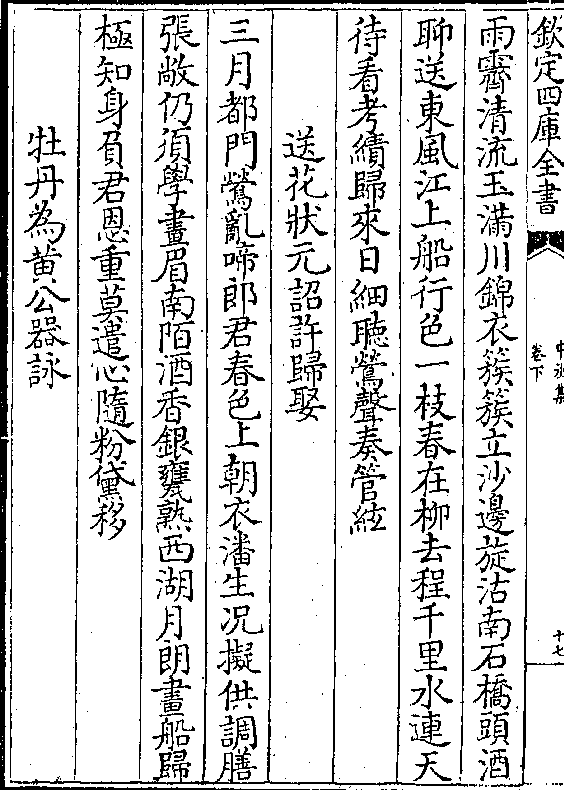 欽定四庫全書
卷下
十七
雨霽清流玉滿川錦衣簇簇立沙邊旋沽南石橋頭酒
聊送東風江上船行色一枝春在柳去程千里水連天
待看考績歸來日細聽鶯聲奏管絃
送花狀元詔許歸娶
三月都門鶯亂啼郎君春色上朝衣潘生况擬供調膳
張敞仍須學畫眉南陌酒香銀甕熟西湖月朗畫船歸
極知身負君恩重莫遣心隨粉黛移
牡丹為黄公器詠